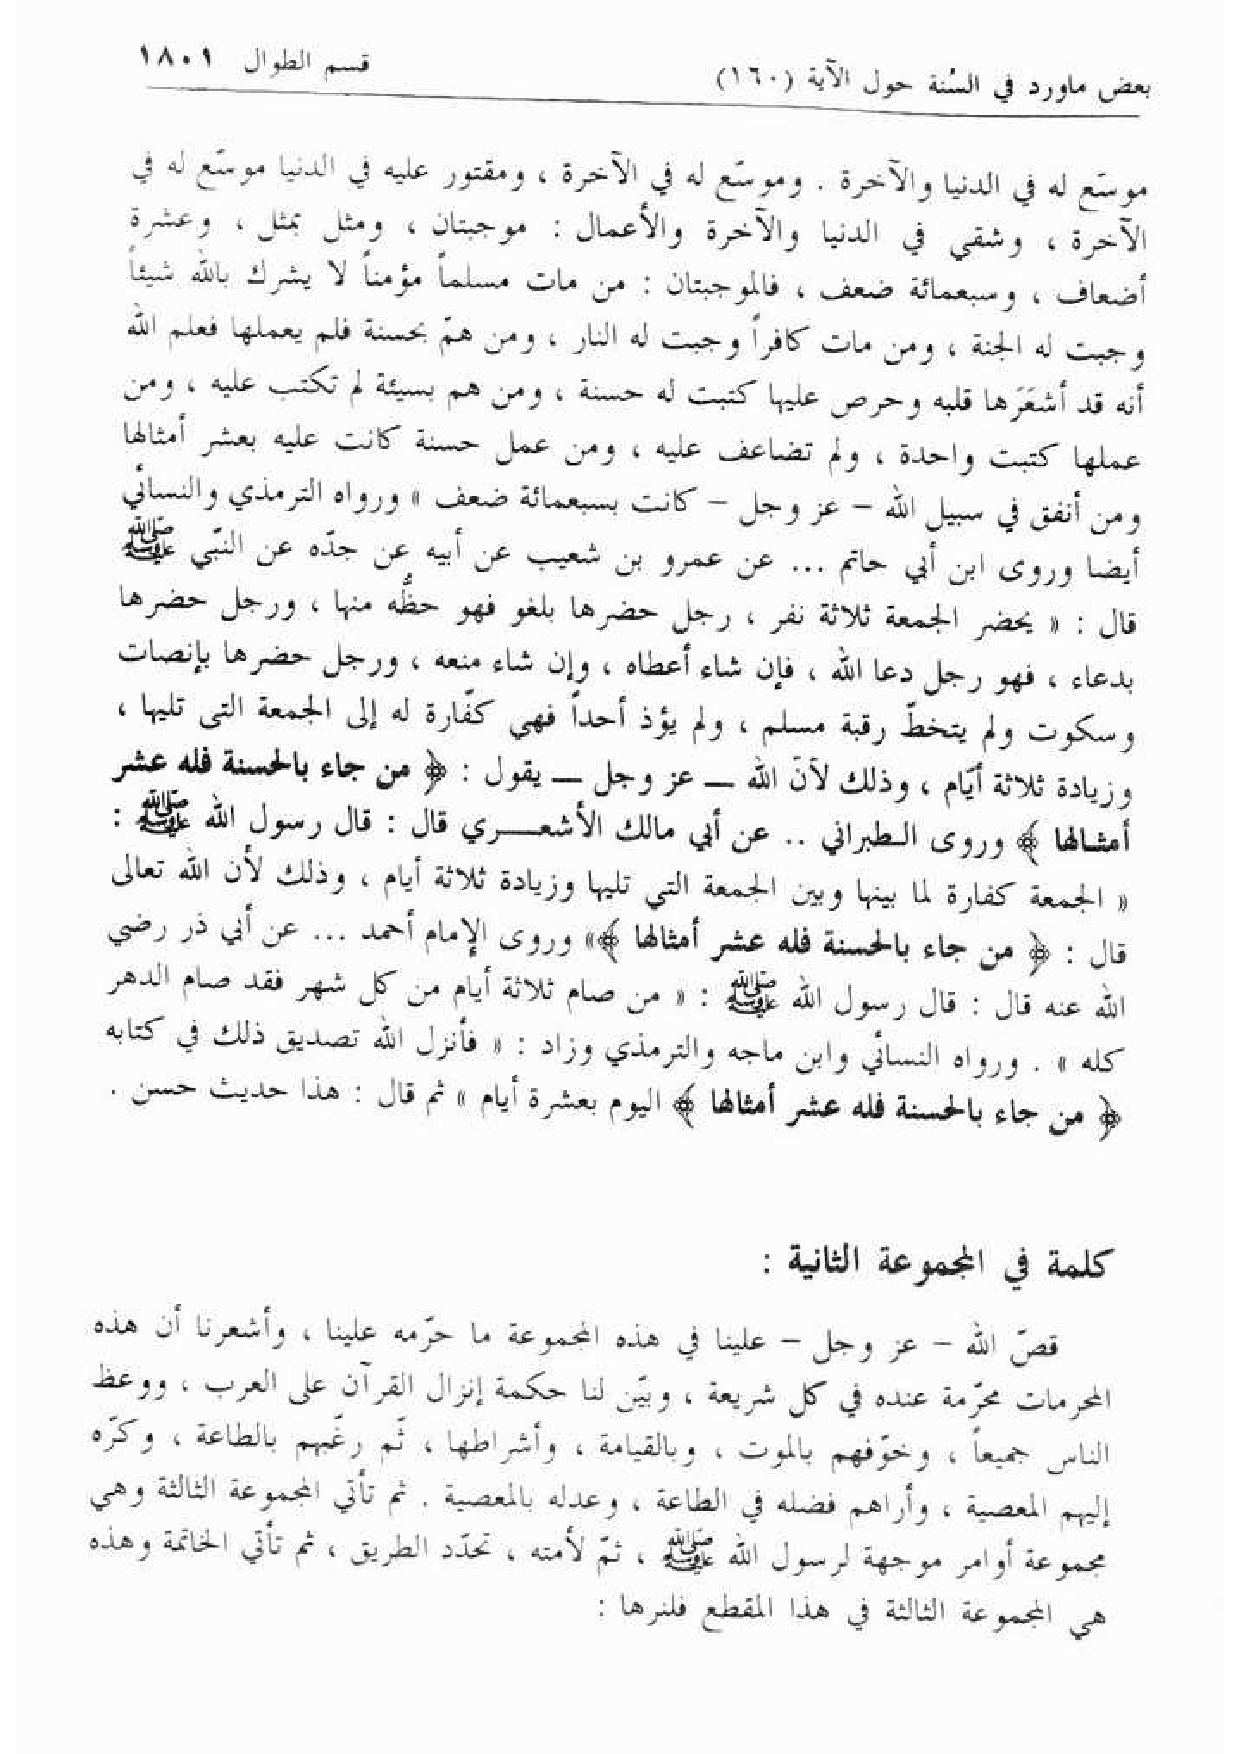 بعض ماورد في السُنة حول الآية (١٦٠) قسم الطوال ١٨٠١
موسّع له في الدنيا والآخرة . وموسّع له في الآخرة ، ومقتور عليه في الدنيا موسّع له في
الآخرة ، وشقي في الدنيا والآخرة والأعمال : موجبتان ، ومثل بمثل ، وعشرة
أضعاف ، وسبعمائة ضعف ، فالموجبتان : من مات مسلماً مؤمناً لا يشرك بالله شيئاً
وجبت له الجنة ، ومن مات كافراً وجبت له النار ، ومن همّ بحسنة فلم يعملها فعلم الله
أنه قد أشعَرَها قلبه وحرص عليها كتبت له حسنة ، ومن هم بسيئة لم تكتب عليه ، ومن
عملها كتبت واحدة ، ولم تضاعف عليه ، ومن عمل حسنة كانت عليه بعشر أمثالها
ومن أنفق في سبيل الله – عز وجل – كانت بسبعمائة ضعف » ورواه الترمذي والنسائي
أيضا وروى ابن أبي حاتم ... عن عمرو بن شعيب عن أبيه عن جدّه عن النبّي ﷺ
قال : « يحضر الجمعة ثلاثة نفر ، رجل حضرها بلغو فهو حظُّه منها ، ورجل حضرها
بدعاء ، فهو رجل دعا الله ، فإن شاء أعطاه ، وإن شاء منعه ، ورجل حضرها بإنصات
وسكوت ولم يتخطّ رقبة مسلم ، ولم يؤذ أحداً فهي كفّارة له إلى الجمعة التى تليها ،
وزيادة ثلاثة أيّام ، وذلك لأنّ الله ــ عز وجل ــ يقول : ﴿ من جاء بالحسنة فله عشر
أمثالها ﴾ وروى الطبراني .. عن أبي مالك الأشعري قال : قال رسول الله ﷺ :
« الجمعة كفارة لما بينها وبين الجمعة التي تليها وزيادة ثلاثة أيام ، وذلك لأن الله تعالى
قال : ﴿ من جاء بالحسنة فله عشر أمثالها ﴾» وروى الإمام أحمد ... عن أبي ذر رضي
الله عنه قال : قال رسول الله ﷺ : « من صام ثلاثة أيام من كل شهر فقد صام الدهر
كله » . ورواه النسائي وابن ماجه والترمذي وزاد : « فأنزل الله تصديق ذلك في كتابه
﴿ من جاء بالحسنة فله عشر أمثالها ﴾ اليوم بعشرة أيام » ثم قال : هذا حديث حسن .
كلمة في المجموعة الثانية :
قصّ الله – عز وجل – علينا في هذه المجموعة ما حرّمه علينا ، وأشعرنا أن هذه
المحرمات محرّمة عنده في كل شريعة ، وبيّن لنا حكمة إنزال القرآن على العرب ، ووعظ
الناس جميعاً ، وخوّفهم بالموت ، وبالقيامة ، وأشراطها ، ثّم رغّبهم بالطاعة ، وكرّه
إليهم المعصية ، وأراهم فضله في الطاعة ، وعدله بالمعصية . ثم تأتي المجموعة الثالثة وهي
مجموعة أوامر موجهة لرسول الله ﷺ ، ثمّ لأمته ، تحدّد الطريق ، ثم تأتي الخاتمة وهذه
هي المجموعة الثالثة في هذا المقطع فلنرها :